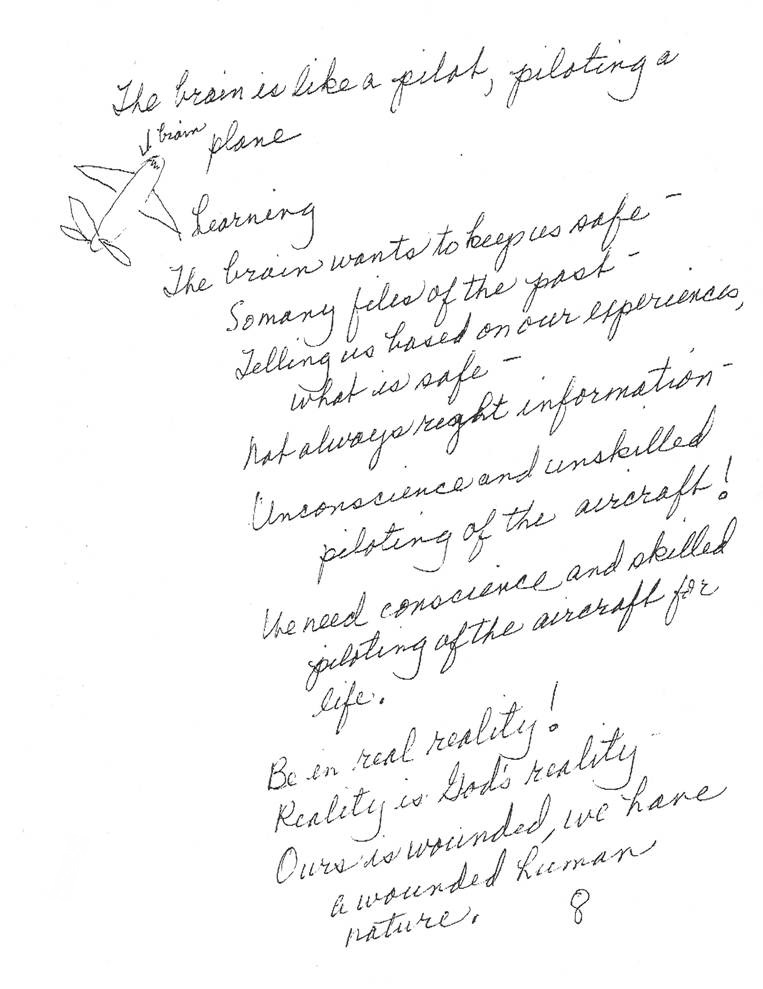 The brain is like a pilot, piloting a
plane
↓ brain
Learning
The brain wants to keep us safe -
So many files of the past -
Telling us based on our experiences,
what is safe -
Not always right information -
Unconscience and unskilled
piloting of the aircraft!
We need conscience and skilled
piloting of the aircraft for
life.
Be in real reality!
Reality is God's reality
Ours is wounded, we have
a wounded human
nature.
8